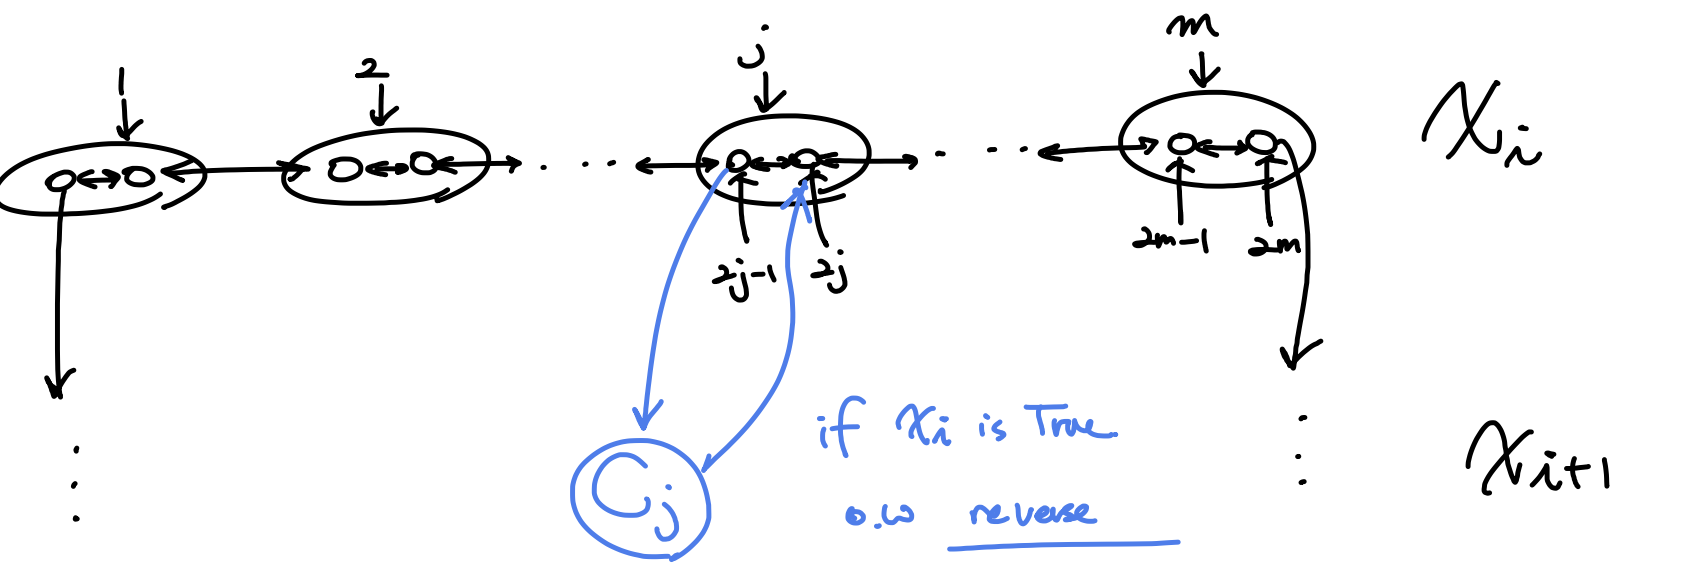 1 2 j m
x_i
2j-1 2j 2m-1 2m
C_j
if x_i is True
o.w reverse
x_{i+1}